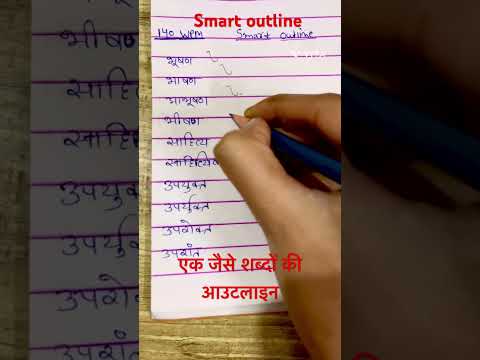 Smart outline
140 WPM Smart outline
भूषण
भाषण
आभूषण
भीषण
साहित्य
उपयुक्त
उपर्युक्त
उपरोक्त
उपरांत
एक जैसे शब्दों की
आउटलाइन